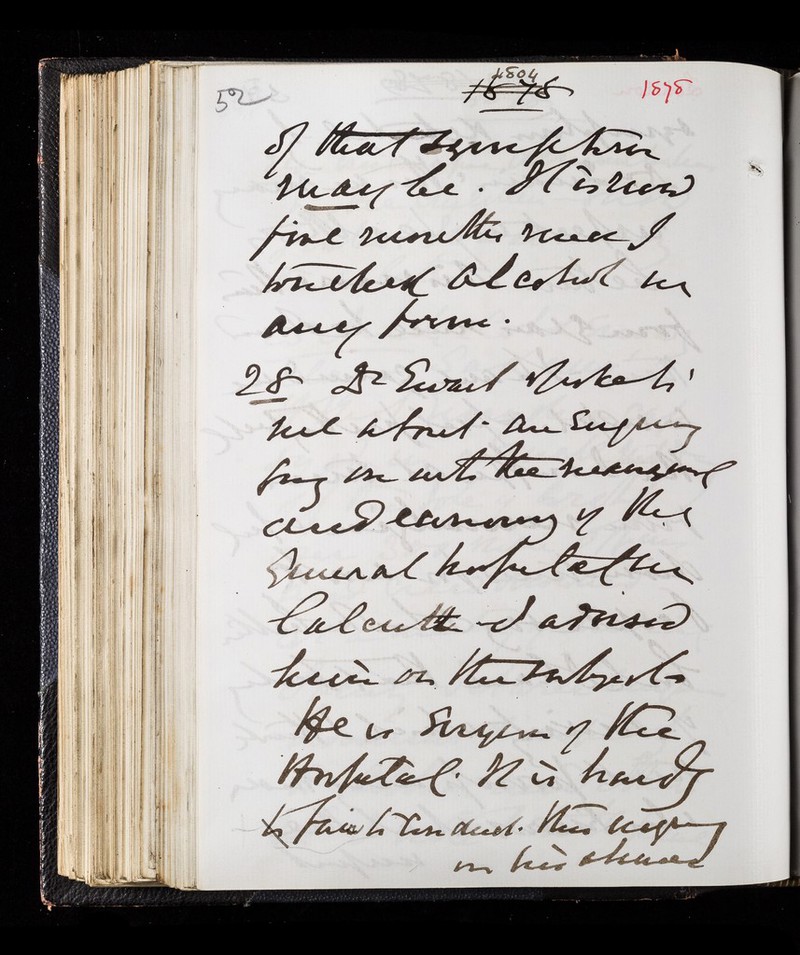 52
4804
1878
1878
of that symptom
may be. It is now
five months since I
touched alcohol in
any form.
28 Dr Ewart spoke to
me about an Enquiry
going on into the management
and economy of the
General hospital in
Calcutta - I advised
him on the subject
He is Surgeon of the
Hospital. It is hardly
fair to conduct this enquiry
in his absence